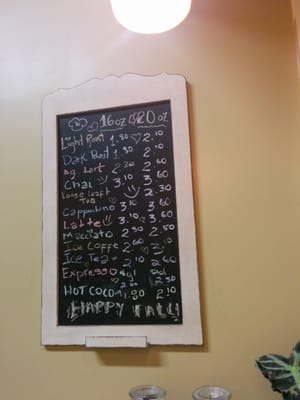 16oz 20oz
Light Roast 1.80 2.10
Dark Roast 1.80 2.10
2.30 2.40
Chai 3.10 3.60
Loose leaf Tea
Cappuccino 3.10 3.60
Latte 3.10 3.60
Macciato 2.50 2.80
Ice Coffe 2.60
Ice Tea 2.10 2.60
Expresso sgl
2.00 2.50
HOT COCO 1.80 2.10
HAPPY FALL!